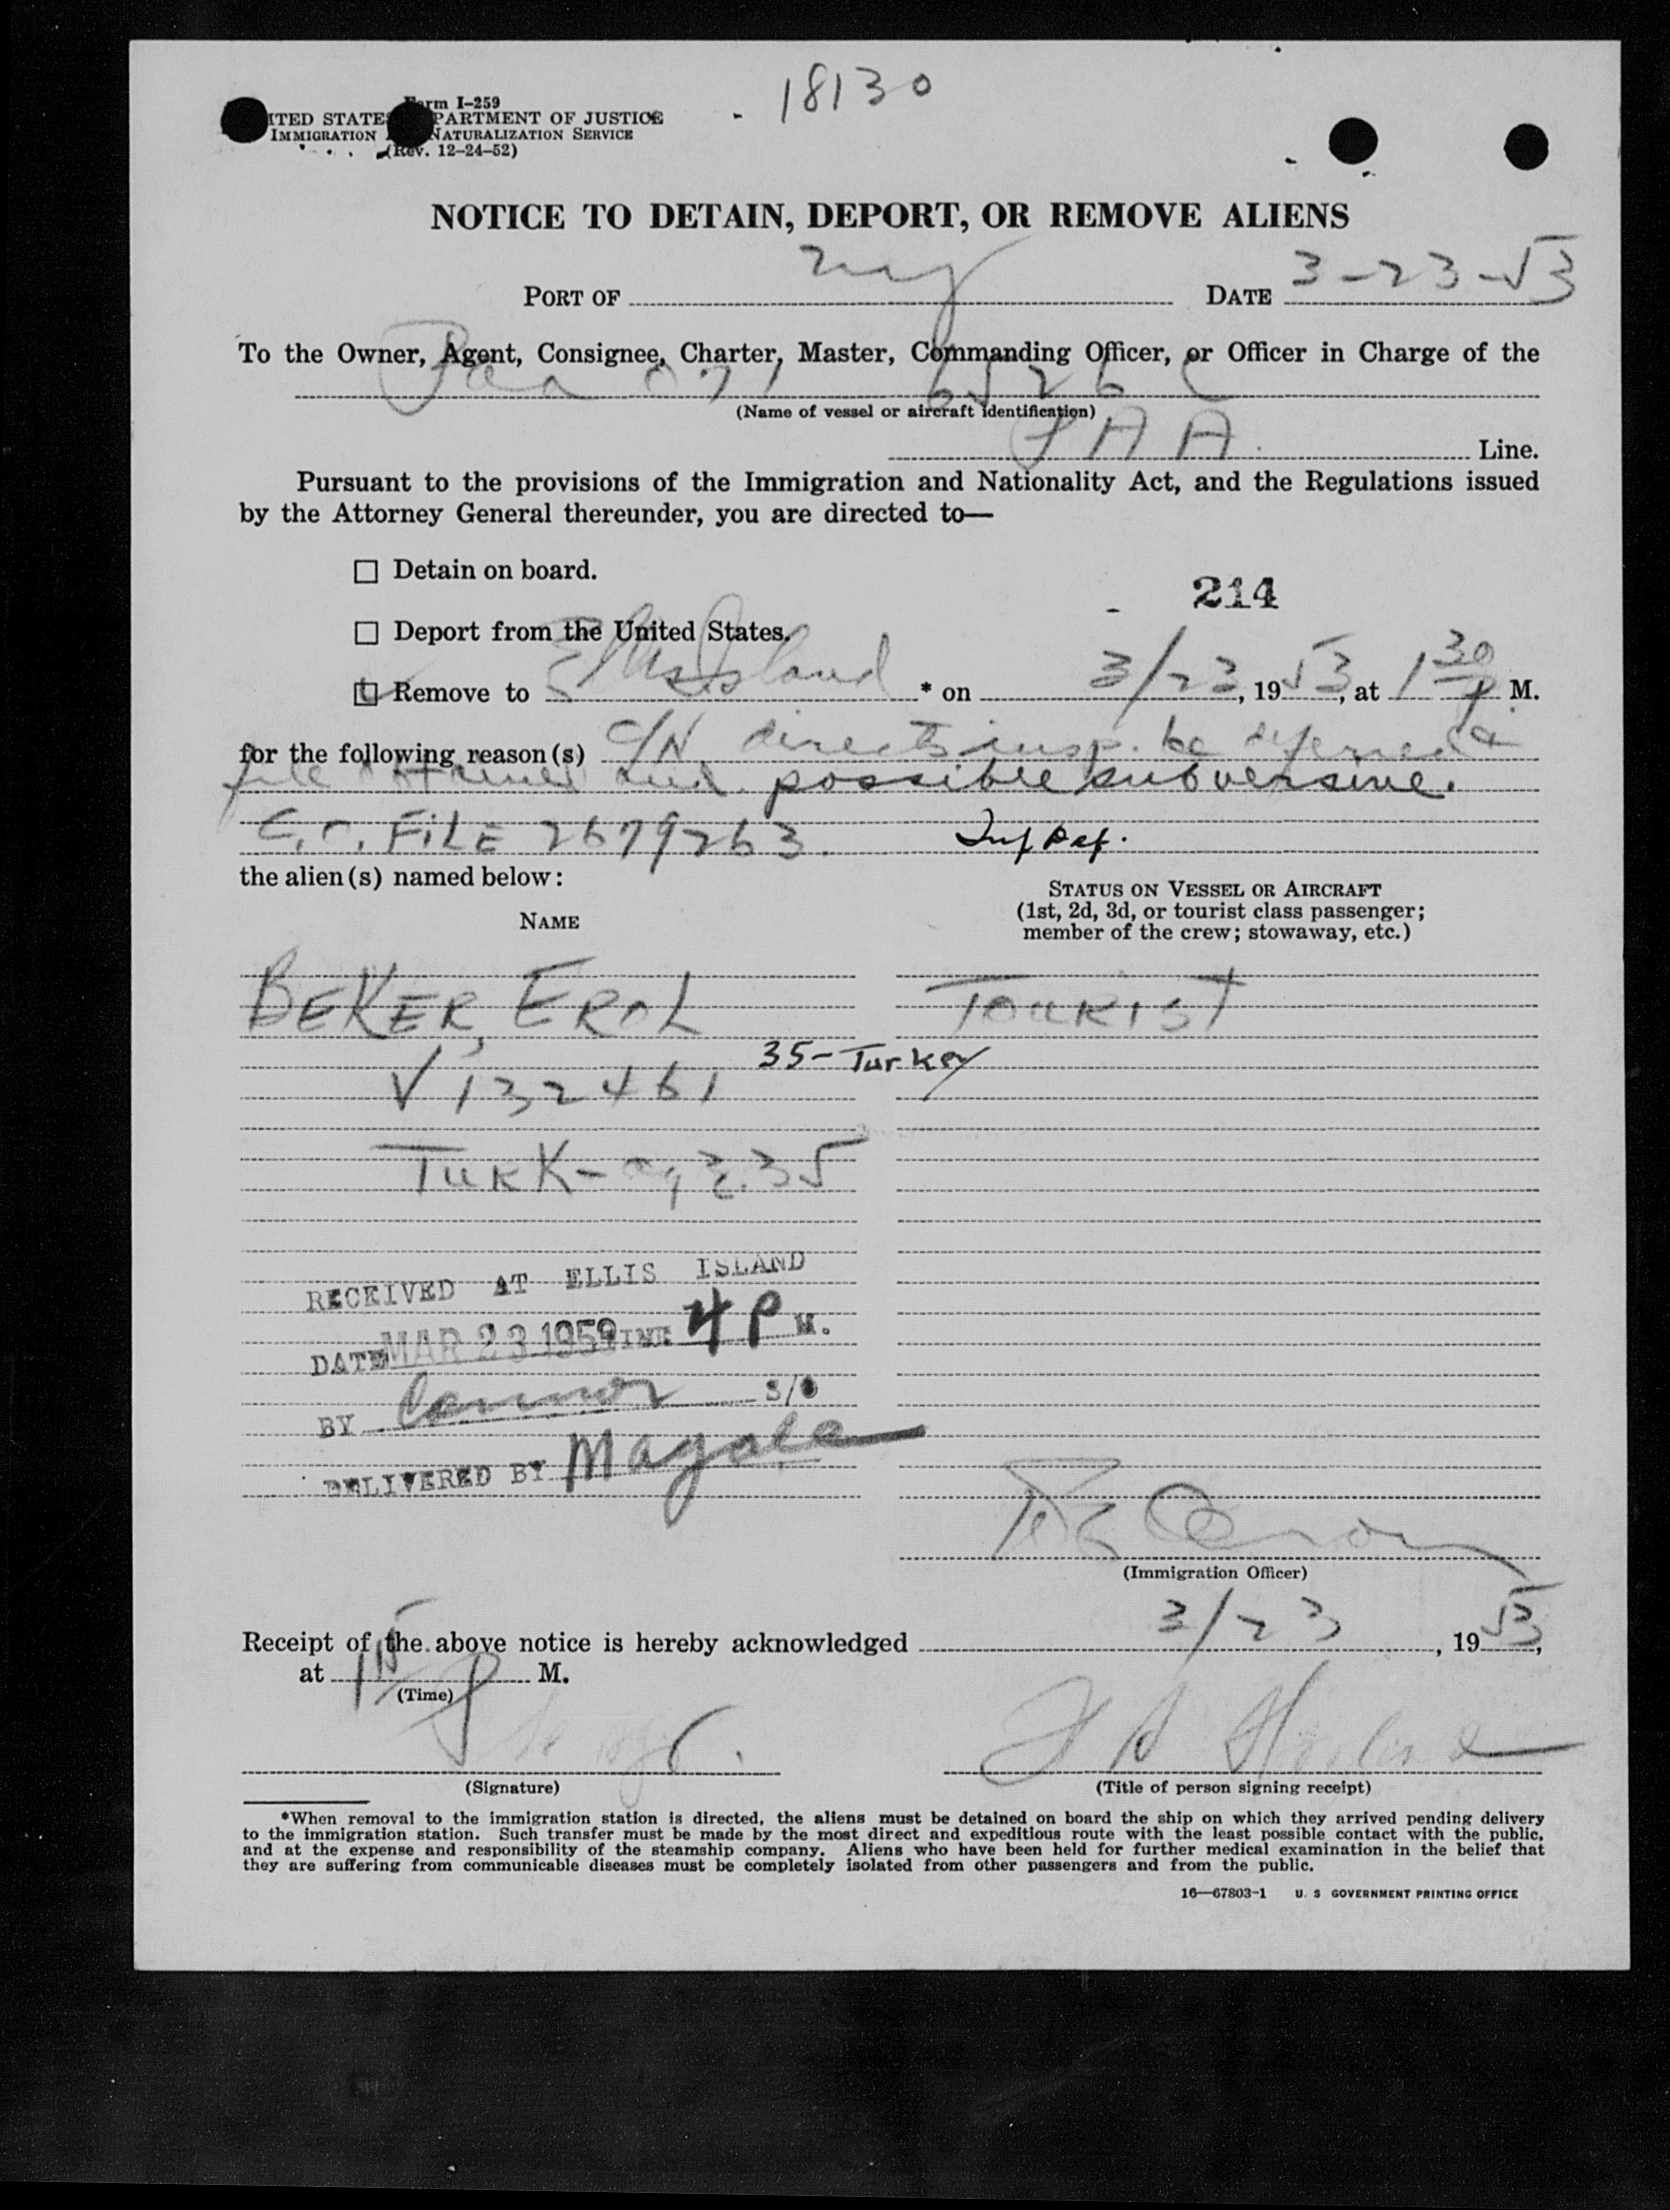 18130
Form I-259
ITED STATES PARTMENT OF JUSTICE
IMMIGRATION NATURALIZATION SERVICE
(Rev. 12-24-52)
NOTICE TO DETAIN, DEPORT, OR REMOVE ALIENS
PORT OF NY DATE 3-23-53
To the Owner, Agent, Consignee, Charter, Master, Commanding Officer, or Officer in Charge of the
Paa 071 6526C
(Name of vessel or aircraft identification)
PAA Line.
Pursuant to the provisions of the Immigration and Nationality Act, and the Regulations issued
by the Attorney General thereunder, you are directed to—
☐ Detain on board.
214
☐ Deport from the United States.
Remove to Ellis Island * on 3/23, 1953, at 1 30 P M.
for the following reason(s) C/N directs insp. be deferred &
file possible subversive.
C.O. FILE 2679263. Inf Def.
the alien(s) named below:
NAME
STATUS ON VESSEL OR AIRCRAFT
(1st, 2d, 3d, or tourist class passenger;
member of the crew; stowaway, etc.)
BEKER, EROL TOURIST
35-Turkey
V 132461
TURK- age 35
RECEIVED AT ELLIS ISLAND
DATE MAR 23 1953 TIME 4 P M.
BY Connor S/O
DELIVERED BY
(Immigration Officer)
Receipt of the above notice is hereby acknowledged 3/23, 1953,
at 115 P M.
(Time)
(Signature)
(Title of person signing receipt)
*When removal to the immigration station is directed, the aliens must be detained on board the ship on which they arrived pending delivery
to the immigration station. Such transfer must be made by the most direct and expeditious route with the least possible contact with the public,
and at the expense and responsibility of the steamship company. Aliens who have been held for further medical examination in the belief that
they are suffering from communicable diseases must be completely isolated from other passengers and from the public.
16—67803-1 U. S GOVERNMENT PRINTING OFFICE